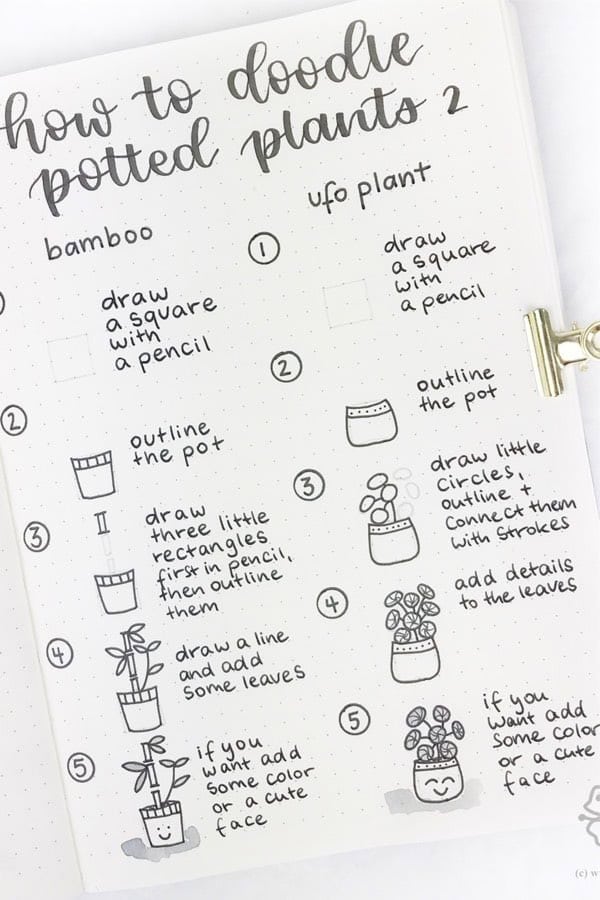 how to doodle
potted plants 2
bamboo
draw
a square
with
a pencil
2
outline
the pot
3
draw
three little
rectangles
first in pencil,
then outline
them
4
draw a line
and add
some leaves
5
if you
want add
some color
or a cute
face
ufo plant
1
draw
a square
with
a pencil
2
outline
the pot
3
draw little
circles,
outline +
connect them
with strokes
4
add details
to the leaves
5
if you
want add
some color
or a cute
face
(c) w